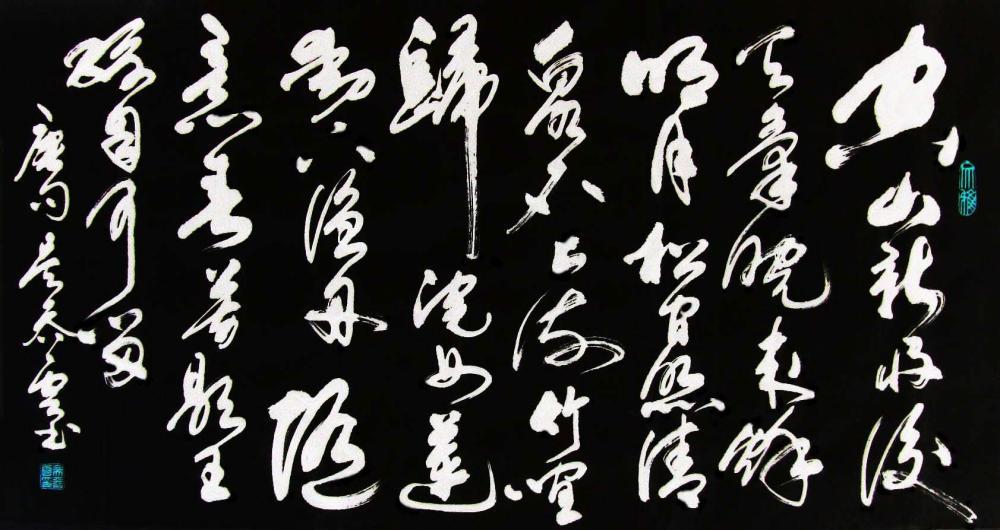 空山新雨後
天氣晚來秋
明月松間照清
泉石上流竹喧
歸浣女蓮
動下漁舟隨
意春芳歇王
孫自可留